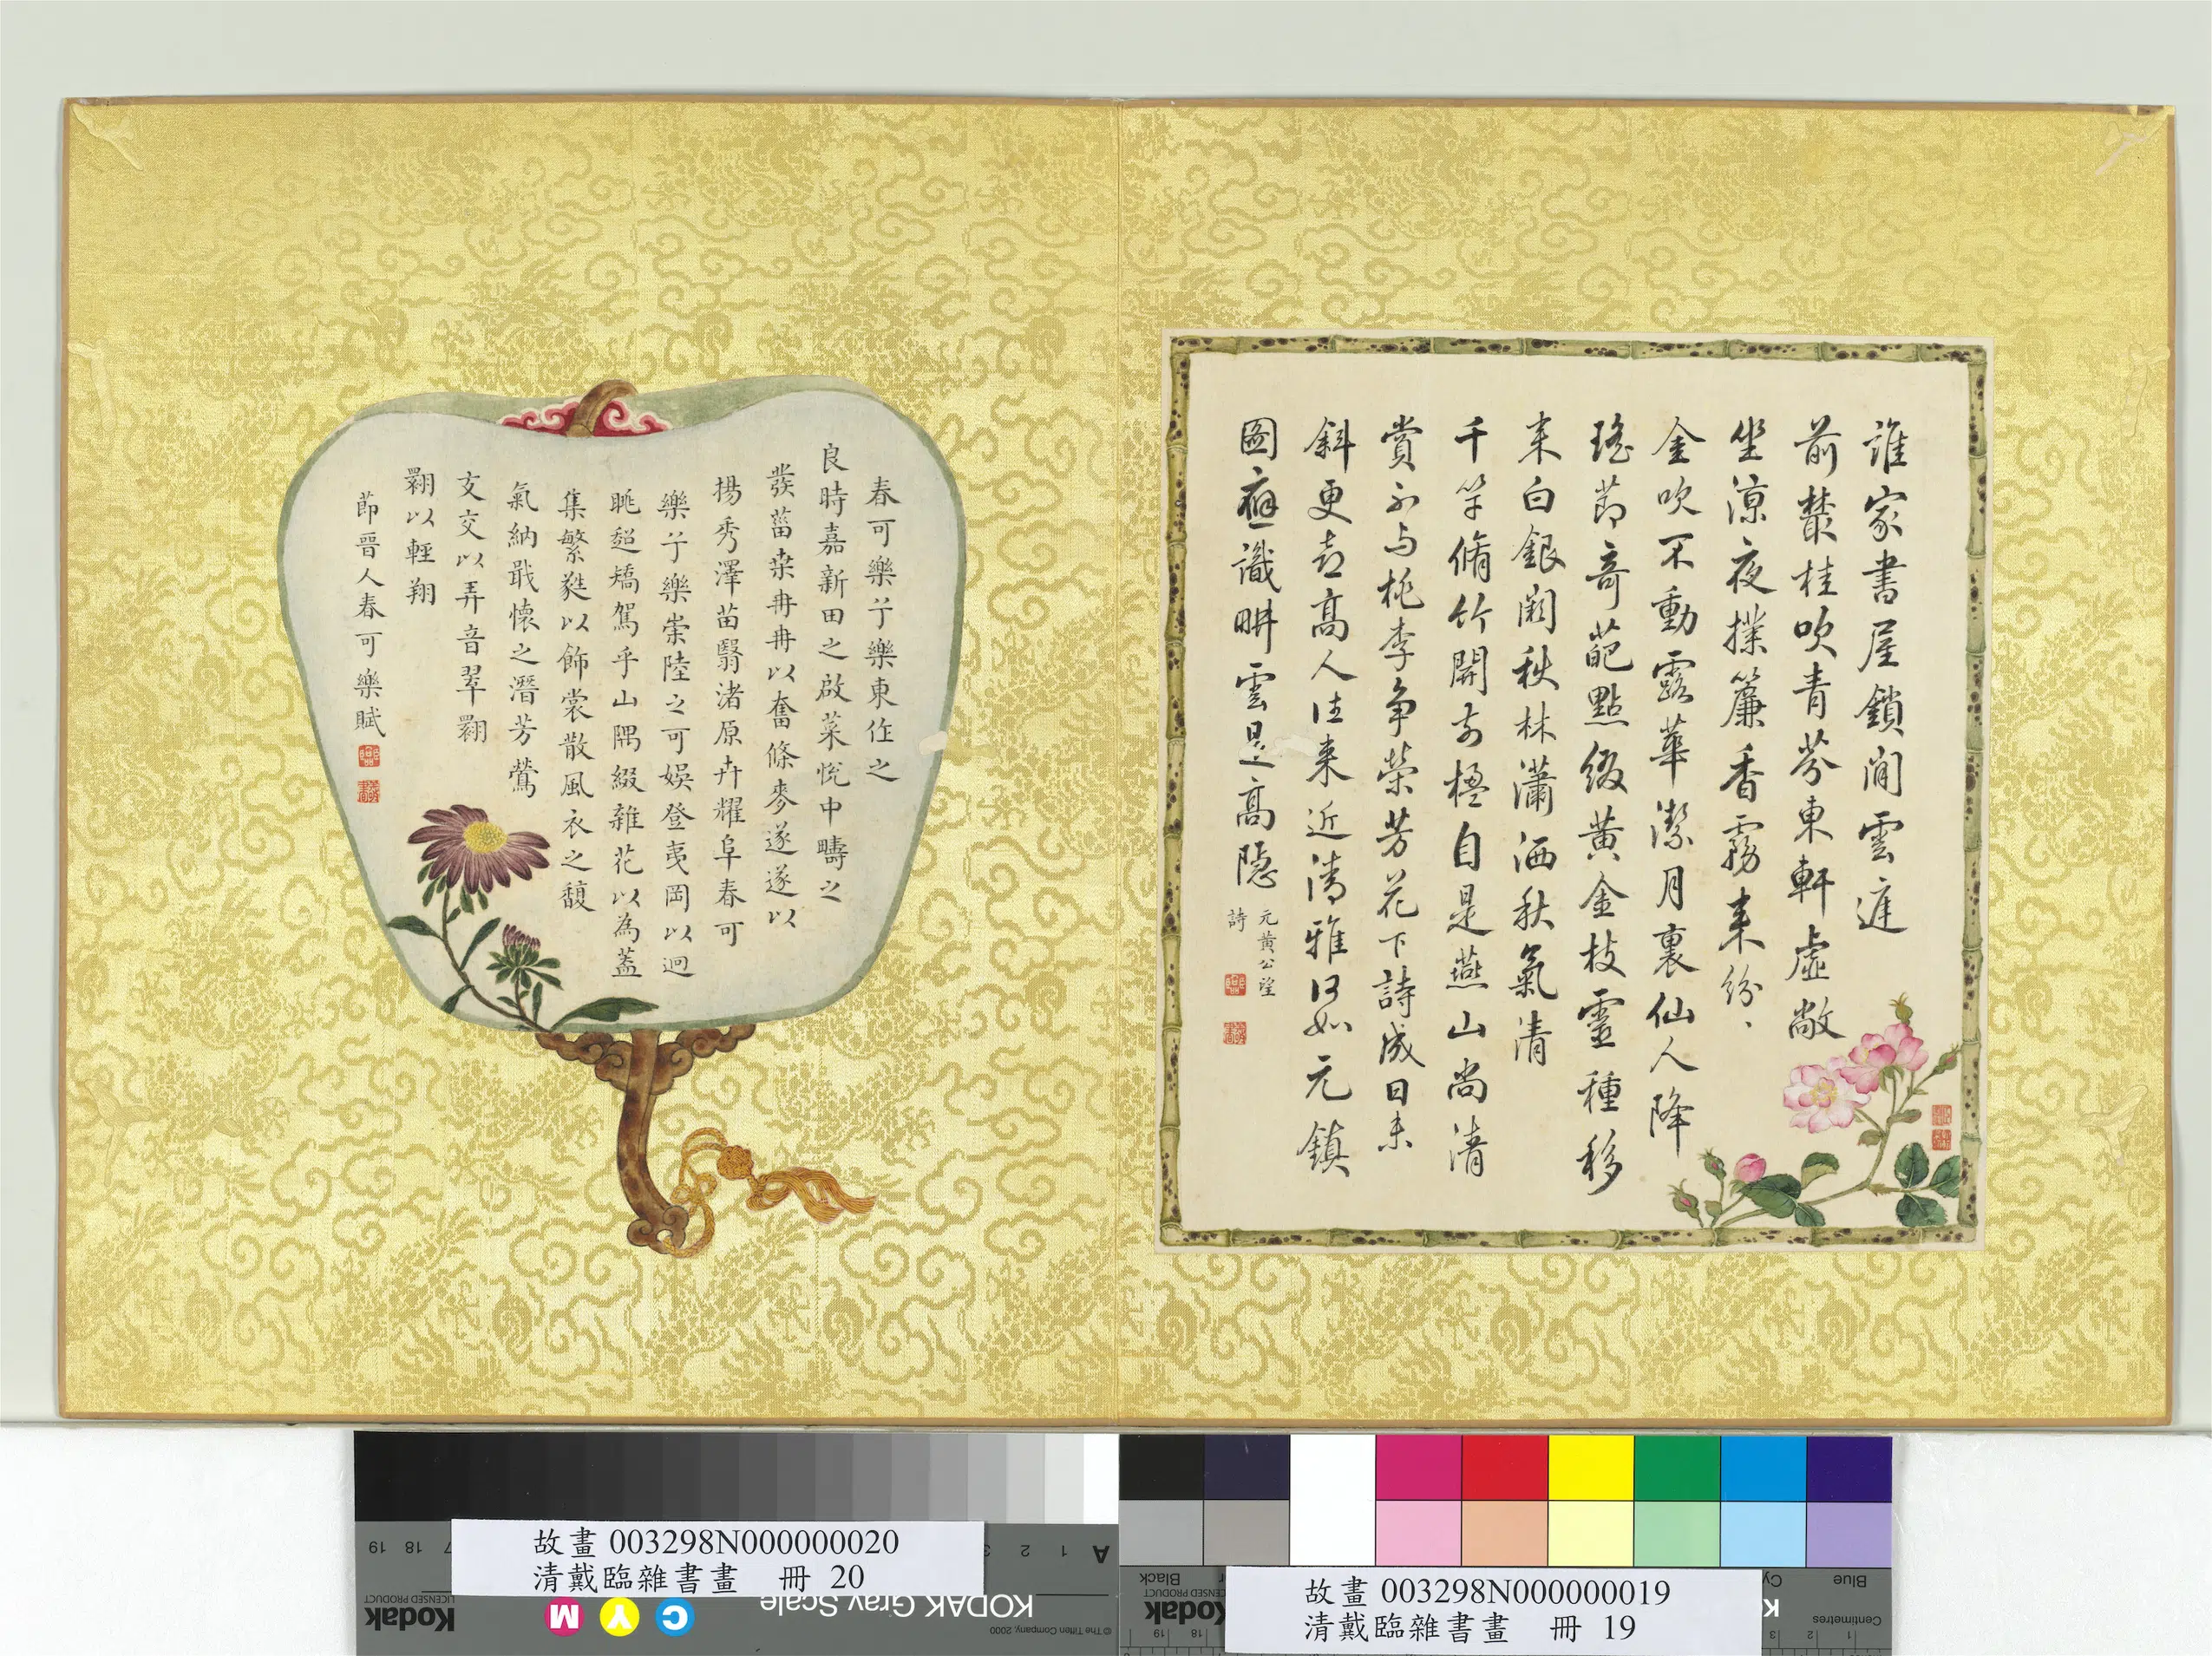 誰家書屋鎖閒雲庭
前叢桂吹青芬東軒虛敞
坐涼夜撲簾香霧來紛、
金吹不動露華潔月裏仙人降
瑤節奇葩點綴黃金枝靈種移
來白銀闕秋林瀟洒秋氣清
千竿脩竹開前楹自是燕山尚清
賞不与桃李爭榮芳花下詩成日未
斜更喜高人往來近清雅何如元鎮
圖應識畊雲是高隱
元黃公望
詩
春可樂兮樂東作之
良時嘉新田之啟萊悅中疇之
發菑桒冉冉以奮條麥遂遂以
揚秀澤苗翳渚原卉耀阜春可
樂兮樂崇陸之可娛登夷岡以迥
眺超矯駕乎山隅綴雜花以為蓋
集繁蕤以飾裳散風衣之馥
氣納戢懷之潛芳鶯
交交以弄音翠翾
翾以輕翔
節晉人春可樂賦
故畫 003298N000000020
清戴臨雜書畫 冊 20
故畫 003298N000000019
清戴臨雜書畫 冊 19
KODAK Gray Scale
Kodak
LICENSED PRODUCT
C Y M
© The Tiffen Company, 2000
A 1 2
18 19
Kodak
LICENSED PRODUCT
Black
Blue
Centimetres
18 19